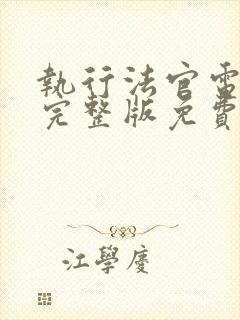 執行法官雷
完整版免費
江學慶